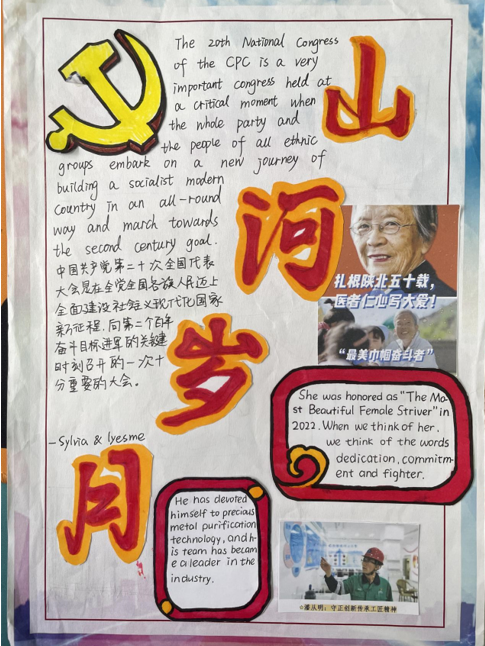 The 20th National Congress
of the CPC is a very
important congress held at
a critical moment when
the whole party and
the people of all ethnic
groups embark on a new journey of
building a socialist modern
Country in an all-round
way and march towards
the second century goal.
中国共产党第二十次全国代表
大会是在全党全国各族人民迈上
全面建设社会主义现代化国家
新征程,向第二个百年
奋斗目标进军的关键
时刻召开的一次十
分重要的大会。
-Sylvia & lyesme
山
河
岁
月
扎根陕北五十载,
医者仁心写大爱!
“最美巾帼奋斗者”
She was honored as "The Mo
st Beautiful Female Striver" in
2022. When we think of her,
we think of the words
dedication, commitm-
ent and fighter.
He has devoted
himself to precious
metal purification
technology, and h
is team has becam
e a leader in the
industry.
◎潘从明:守正创新传承工匠精神